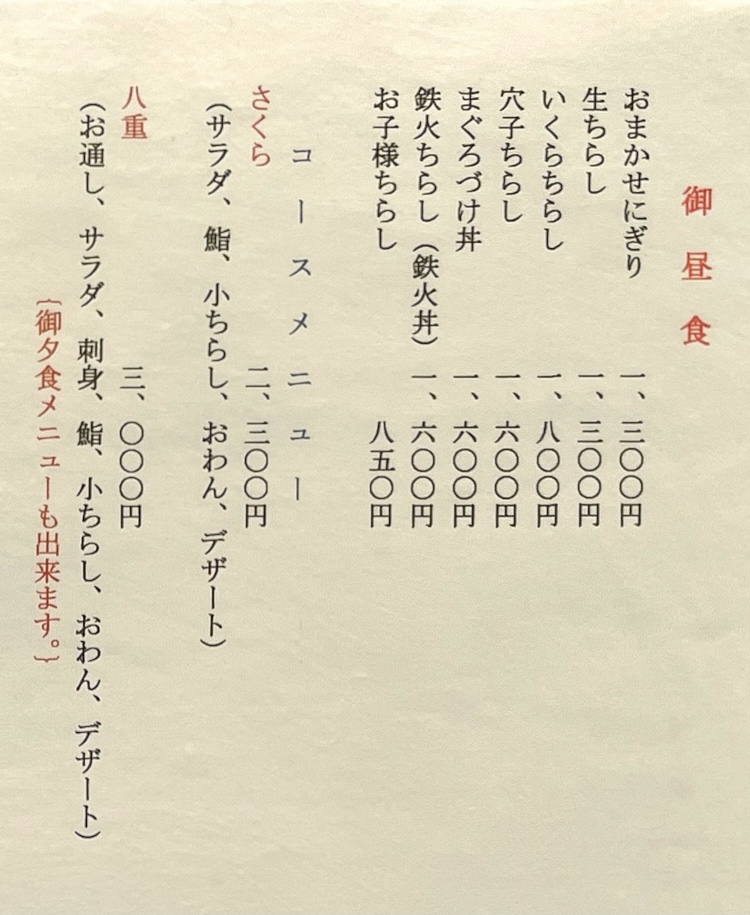 御昼食
おまかせにぎり 一、三〇〇円
生ちらし 一、三〇〇円
いくらちらし 一、八〇〇円
穴子ちらし 一、六〇〇円
まぐろづけ丼 一、六〇〇円
鉄火ちらし（鉄火丼） 一、六〇〇円
お子様ちらし 八五〇円
コースメニュー
さくら 二、三〇〇円
（サラダ、鮨、小ちらし、おわん、デザート）
八重 三、〇〇〇円
（お通し、サラダ、刺身、鮨、小ちらし、おわん、デザート）
｛御夕食メニューも出来ます。｝